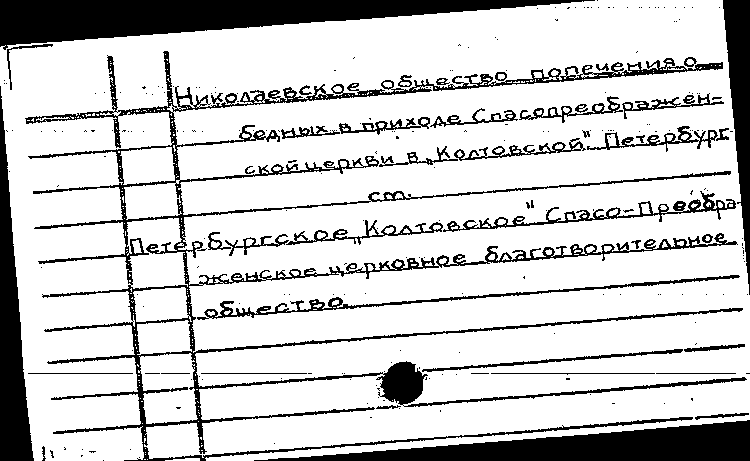 Николаевское общество попечения о
бедных в приходе Спасопреображен-
ской церкви в „Колтовской". Петербург
см.
Петербургское „Колтовское" Спасо-Преобра-
женское церковное благотворительное
общество.